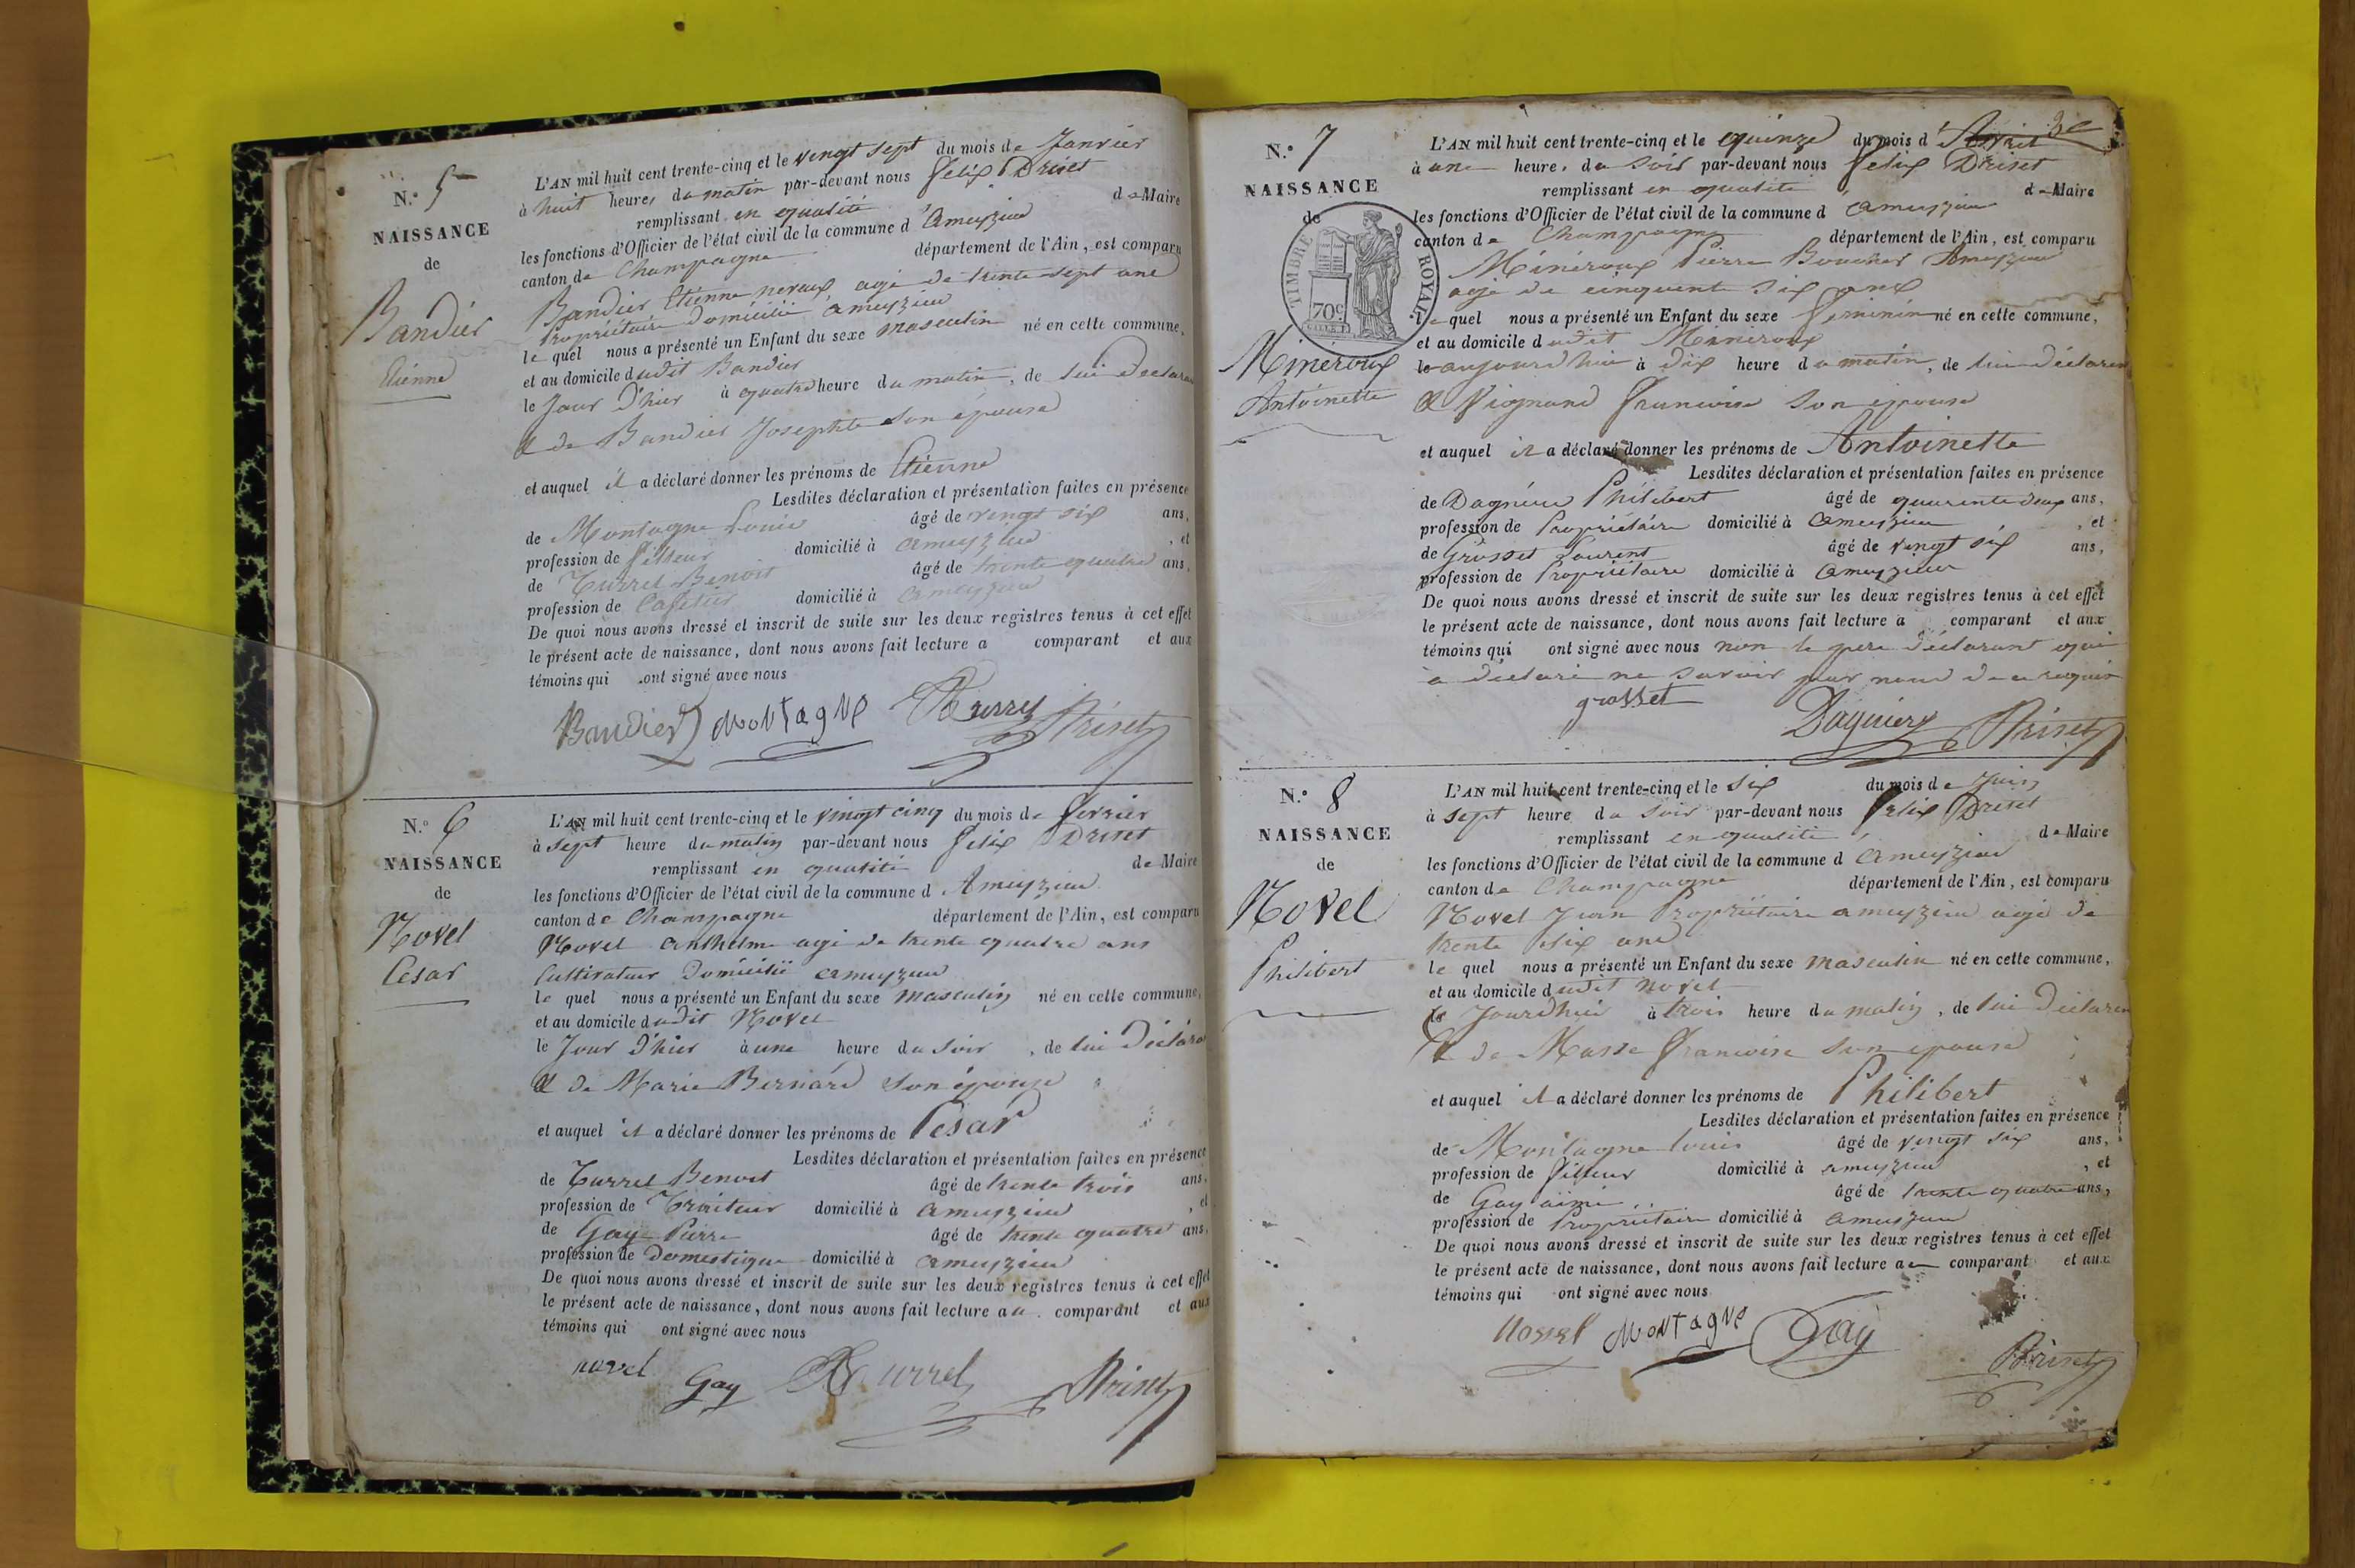 N.° 5
NAISSANCE
de
Bandier
Etienne
L'AN mil huit cent trente-cinq et le vingt sept du mois de Janvier
à huit heure, du matin par-devant nous Felix Briset
remplissant en qualité de Maire
les fonctions d'Officier de l'état civil de la commune d'Ameyzieu
canton de Champagne département de l'Ain, est comparu
Bandier Etienne agé de trente sept ans
Propriétaire domicilié ameyzieu
le quel nous a présenté un Enfant du sexe masculin né en cette commune,
et au domicile dudit Bandier
le Jour D'hier à quatre heure du matin, de lui Declarant
& de Bandier Josephte son épouse
et auquel il a déclaré donner les prénoms de Etienne
Lesdites déclaration et présentation faites en présence
de Montagne Louis âgé de vingt six ans,
profession de domicilié à ameyzieu, et
de Turrel Benoit âgé de trente quatre ans,
profession de Cafetier domicilié à ameyzieu
De quoi nous avons dressé et inscrit de suite sur les deux registres tenus à cet effet
le présent acte de naissance, dont nous avons fait lecture a comparant et aux
témoins qui ont signé avec nous
Bandier Montagne Briset
N.° 6
NAISSANCE
de
Novel
Cesar
L'AN mil huit cent trente-cinq et le vingt cinq du mois de fevrier
à sept heure du matin par-devant nous Felix Briset
remplissant en qualité de Maire
les fonctions d'Officier de l'état civil de la commune d Ameyzieu
canton de Champagne département de l'Ain, est comparu
Novel anthelme agé de trente quatre ans
Cultivateur Domicilié ameyzieu
le quel nous a présenté un Enfant du sexe masculin né en cette commune,
et au domicile dudit Novel
le Jour D'hier à une heure du soir, de lui Déclara
& de Marie Bernard son épouze
et auquel il a déclaré donner les prénoms de Cesar
Lesdites déclaration et présentation faites en présence
de Turrel Benoit âgé de trente trois ans,
profession de Traiteur domicilié à ameyzieu, et
de Gay Pierre âgé de trente quatre ans,
profession de Domestique domicilié à ameyzieu
De quoi nous avons dressé et inscrit de suite sur les deux registres tenus à cet effet
le présent acte de naissance, dont nous avons fait lecture au comparant et aux
témoins qui ont signé avec nous
novel Gay Turrel Briset
N.° 7
NAISSANCE
de
TIMBRE ROYAL
70c
Minéroux
Antoinette
L'AN mil huit cent trente-cinq et le quinze du mois d'Avril
à une heure, du soir par-devant nous felix Briset
remplissant en qualité de Maire
les fonctions d'Officier de l'état civil de la commune d ameyzieu
canton de Champagne département de l'Ain, est comparu
Minéroux Pierre Ameyzieu
agé de cinquente six ans
le quel nous a présenté un Enfant du sexe feminin né en cette commune,
et au domicile dudit Mineroux
le aujourdhui à dix heure du matin, de lui déclaren
& Vignand francoise son epouse
et auquel il a déclaré donner les prénoms de Antoinette
Lesdites déclaration et présentation faites en présence
de Philibert âgé de quarente deux ans,
profession de Propriétaire domicilié à ameyzieu, et
de Grosset Laurent âgé de vingt six ans,
profession de Propriétaire domicilié à ameyzieu
De quoi nous avons dressé et inscrit de suite sur les deux registres tenus à cet effet
le présent acte de naissance, dont nous avons fait lecture a comparant et aux
témoins qui ont signé avec nous non le pere déclarant qui
a déclaré ne savoir
grosset Briset
N.° 8
NAISSANCE
de
Novel
Philibert
L'AN mil huit cent trente-cinq et le six du mois de Juin
à sept heure du soir par-devant nous felix Briset
remplissant en qualité de Maire
les fonctions d'Officier de l'état civil de la commune d ameyzieu
canton de Champagne département de l'Ain, est comparu
Novel Jean Propriétaire ameyzieu agé de
trente six ans
le quel nous a présenté un Enfant du sexe masculin né en cette commune,
et au domicile dudit novel
Jourdhui à trois heure du matin, de lui Déclaren
& de Masse francoise son epouse
et auquel il a déclaré donner les prénoms de Philibert
Lesdites déclaration et présentation faites en présence
de Montagne louis âgé de vingt six ans,
profession de domicilié à ameyzieu, et
de Gay aimé âgé de trente quatre ans,
profession de Propriétaire domicilié à ameyzieu
De quoi nous avons dressé et inscrit de suite sur les deux registres tenus à cet effet
le présent acte de naissance, dont nous avons fait lecture au comparant et aux
témoins qui ont signé avec nous
Montagne Gay Briset